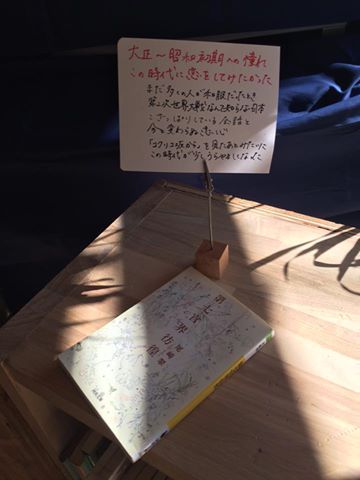 大正〜昭和初期への憧れ
この時代に恋をしてみたかった
まだ多くの人が和服だったとき
第二次世界大戦なんて知らない日本
こざっぱりしている会話と
今と変わらぬ恋心
「コクリコ坂から」を見たあとみたいに
この時代が少しうらやましくなった
第七官界彷徨
尾崎翠